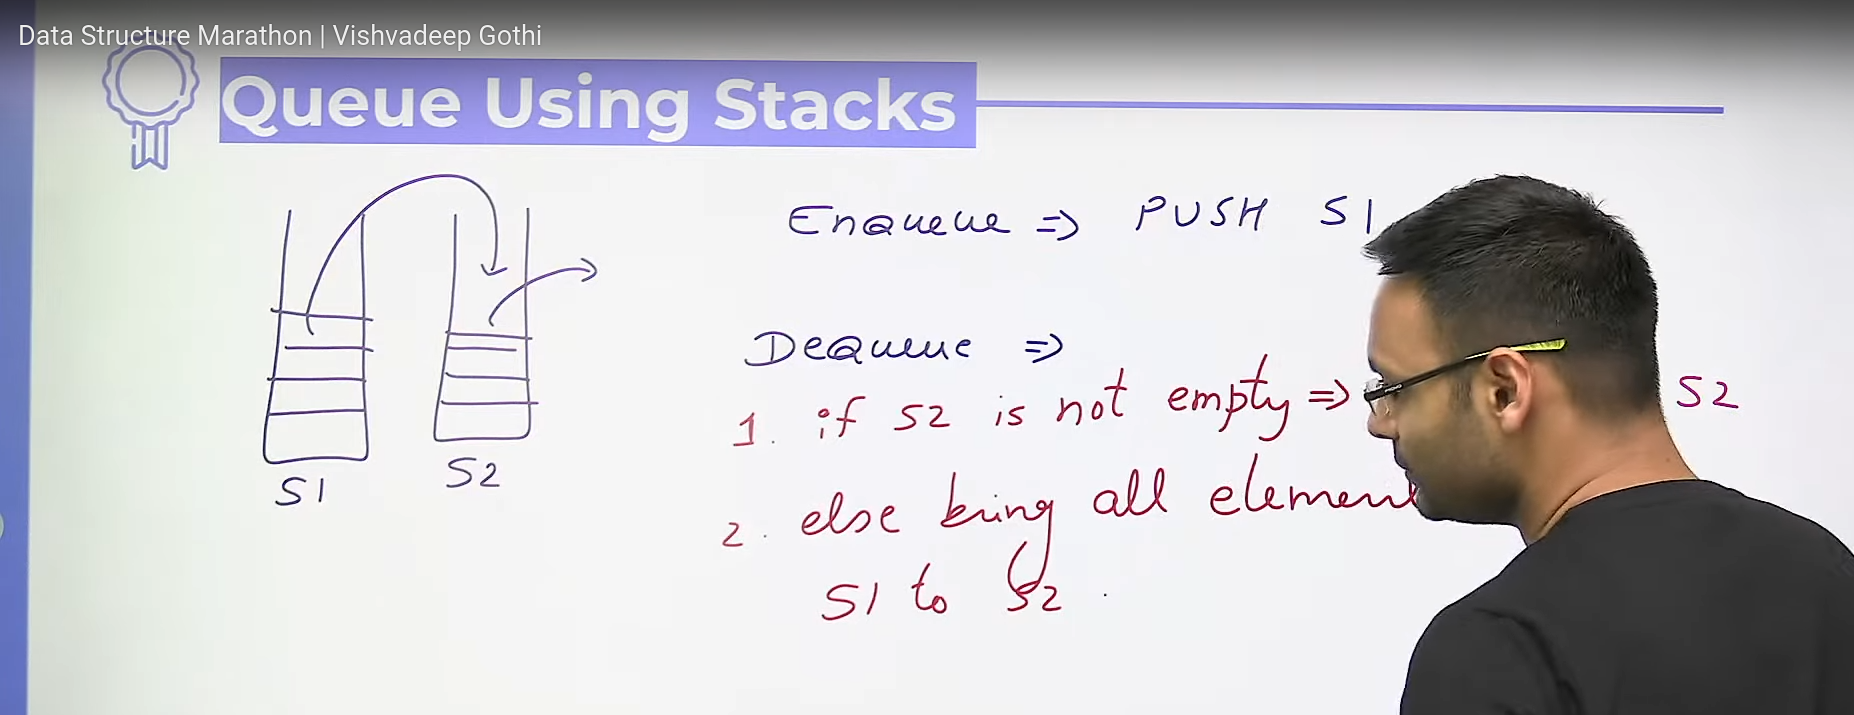 Data Structure Marathon | Vishvadeep Gothi
Queue Using Stacks
Enqueue => PUSH S1
Dequeue =>
1. if S2 is not empty => S2
2. else bring all element
S1 to S2.
S1
S2